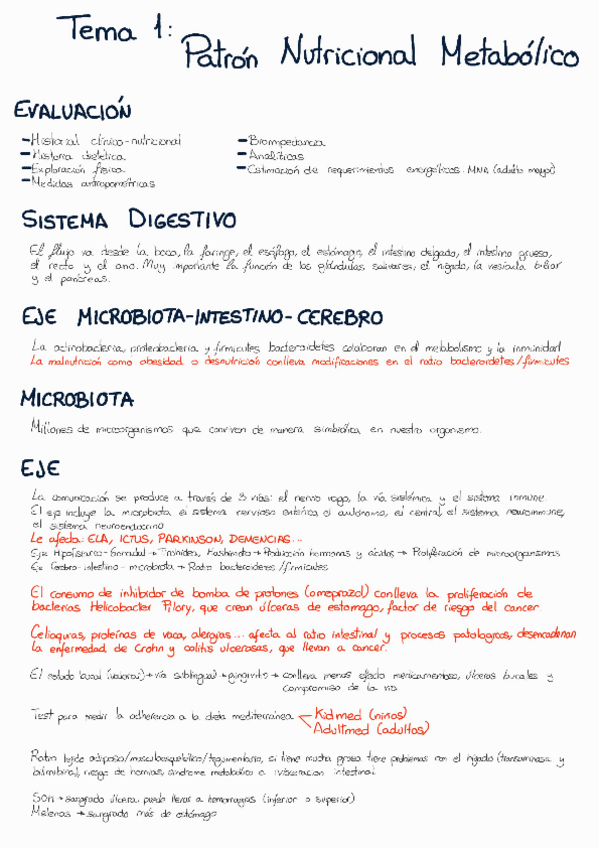 Tema 1: Patrón Nutricional Metabólico
EVALUACIÓN
- Historial clínico-nutricional
- Historia dietética
- Exploración física
- Medidas antropométricas
- Bioimpedancia
- Analíticas
- Estimación de requerimientos energéticos. MNA (adulto mayor)
SISTEMA DIGESTIVO
El flujo va desde la boca, la faringe, el esófago, el estómago, el intestino delgado, el intestino grueso,
el recto y el ano. Muy importante la función de las glándulas salivares, el hígado, la vesícula biliar
y el páncreas.
EJE MICROBIOTA-INTESTINO-CEREBRO
La actinobacteria, proteobacteria y firmicutes, bacteroidetes colaboran en el metabolismo y la inmunidad
La malnutrición como obesidad o desnutrición conlleva modificaciones en el ratio bacteroidetes/firmicutes
MICROBIOTA
Millones de microorganismos que conviven de manera simbiótica en nuestro organismo.
EJE
La comunicación se produce a través de 3 vías: el nervio vago, la vía sistémica y el sistema inmune
El eje incluye la microbiota, el sistema nervioso entérico el autónomo, el central, el sistema neuroinmune,
el sistema neuroendocrino
Le afecta: ELA, ICTUS, PARKINSON, DEMENCIAS...
Eje Hipofisario-Gonadal → Tiroides, Hashimoto → Producción hormonas y ácidos → Proliferación de microorganismos
Eje Cerebro-intestino-microbiota → Ratio bacteroidetes/firmicutes
El consumo de inhibidor de bomba de protones (omeprazol) conlleva la proliferación de
bacterias Helicobacter Pilory, que crean úlceras de estomago, factor de riesgo del cancer
Celiaquías, proteínas de vaca, alergias... afecta al ratio intestinal y procesos patologicos, desencadenan
la enfermedad de Crohn y colitis ulcerosas, que llevan a cancer.
El estado basal → vía siblingual → gingivitis → conlleva menos efecto medicamentoso, úlceras bucales y
compromiso de la vía
Test para medir la adherencia a la dieta mediterránea
Kidmed (niños)
Adultmed (adultos)
Ratio tejido adiposo/musculoesquelético/tegumentario, si tiene mucha grasa tiene problemas con el hígado (transaminasa y
bilirrubina), riesgo de hernias, síndrome metabólico o intestinal
SOH → sangrado úlcera, puede llevar a hemorragias (inferior o superior)
Melenas → sangrado más de estómago